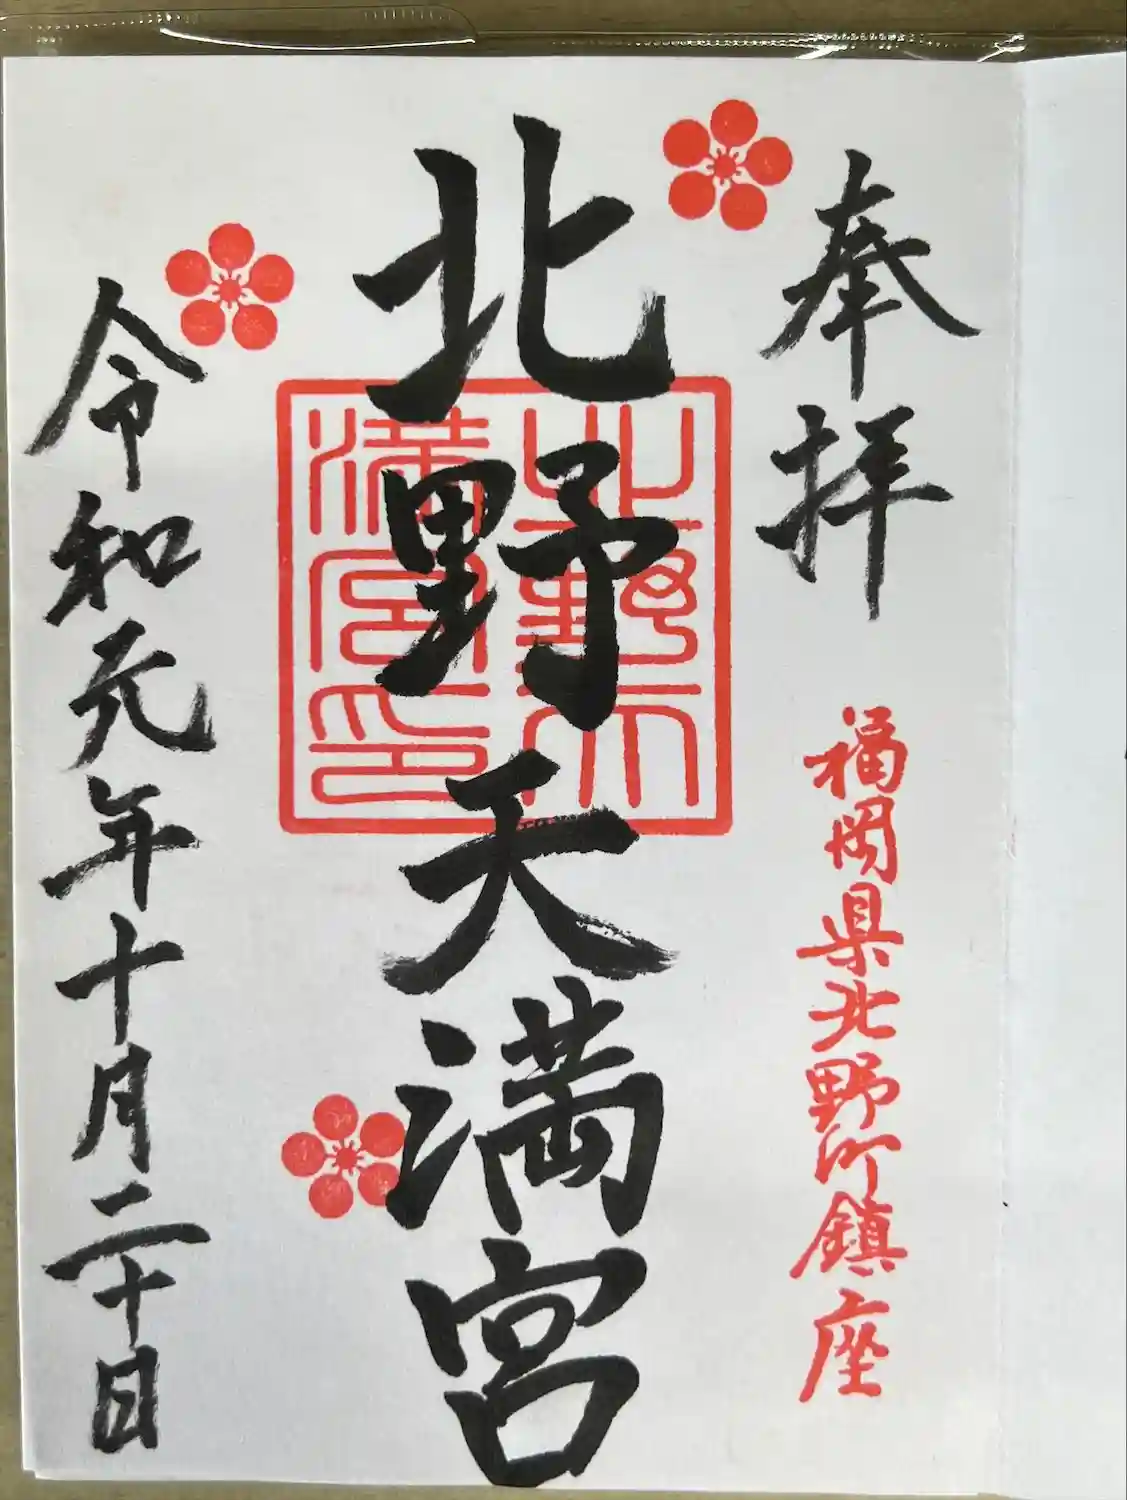 奉拝
福岡県北野町鎮座
北野天満宮
北野天
満宮印
令和元年十月二十日